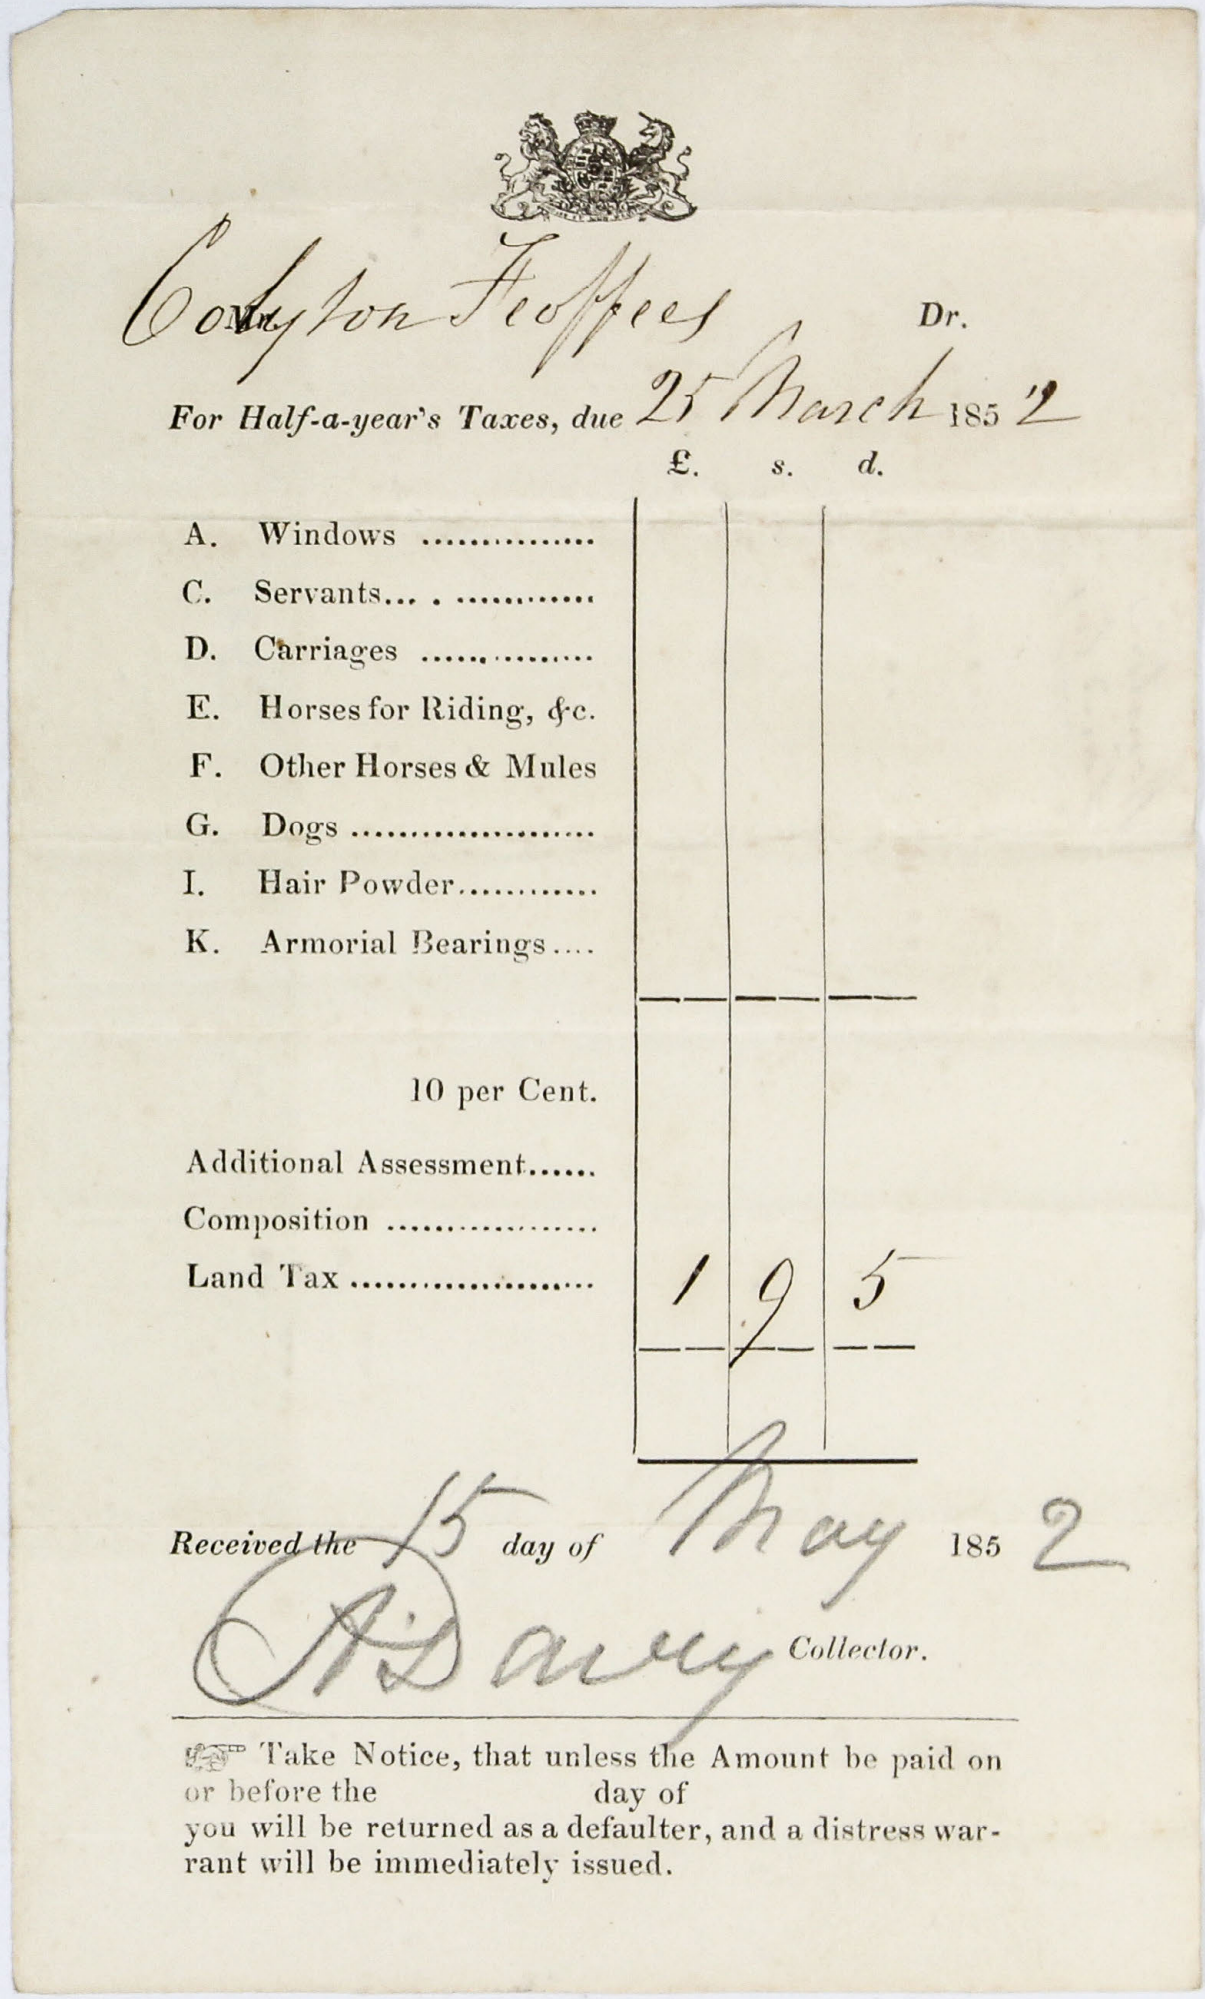 Colyton Feoffees
Mr. Dr.
For Half-a-year's Taxes, due 25 March 1852
£. s. d.
A. Windows ...............
C. Servants... . ............
D. Carriages ...............
E. Horses for Riding, &c.
F. Other Horses & Mules
G. Dogs .....................
I. Hair Powder............
K. Armorial Bearings....
10 per Cent.
Additional Assessment......
Composition ..................
Land Tax ..................... 1 9 5
Received the 15 day of May 1852
A Davey Collector.
☞ Take Notice, that unless the Amount be paid on
or before the day of
you will be returned as a defaulter, and a distress war-
rant will be immediately issued.